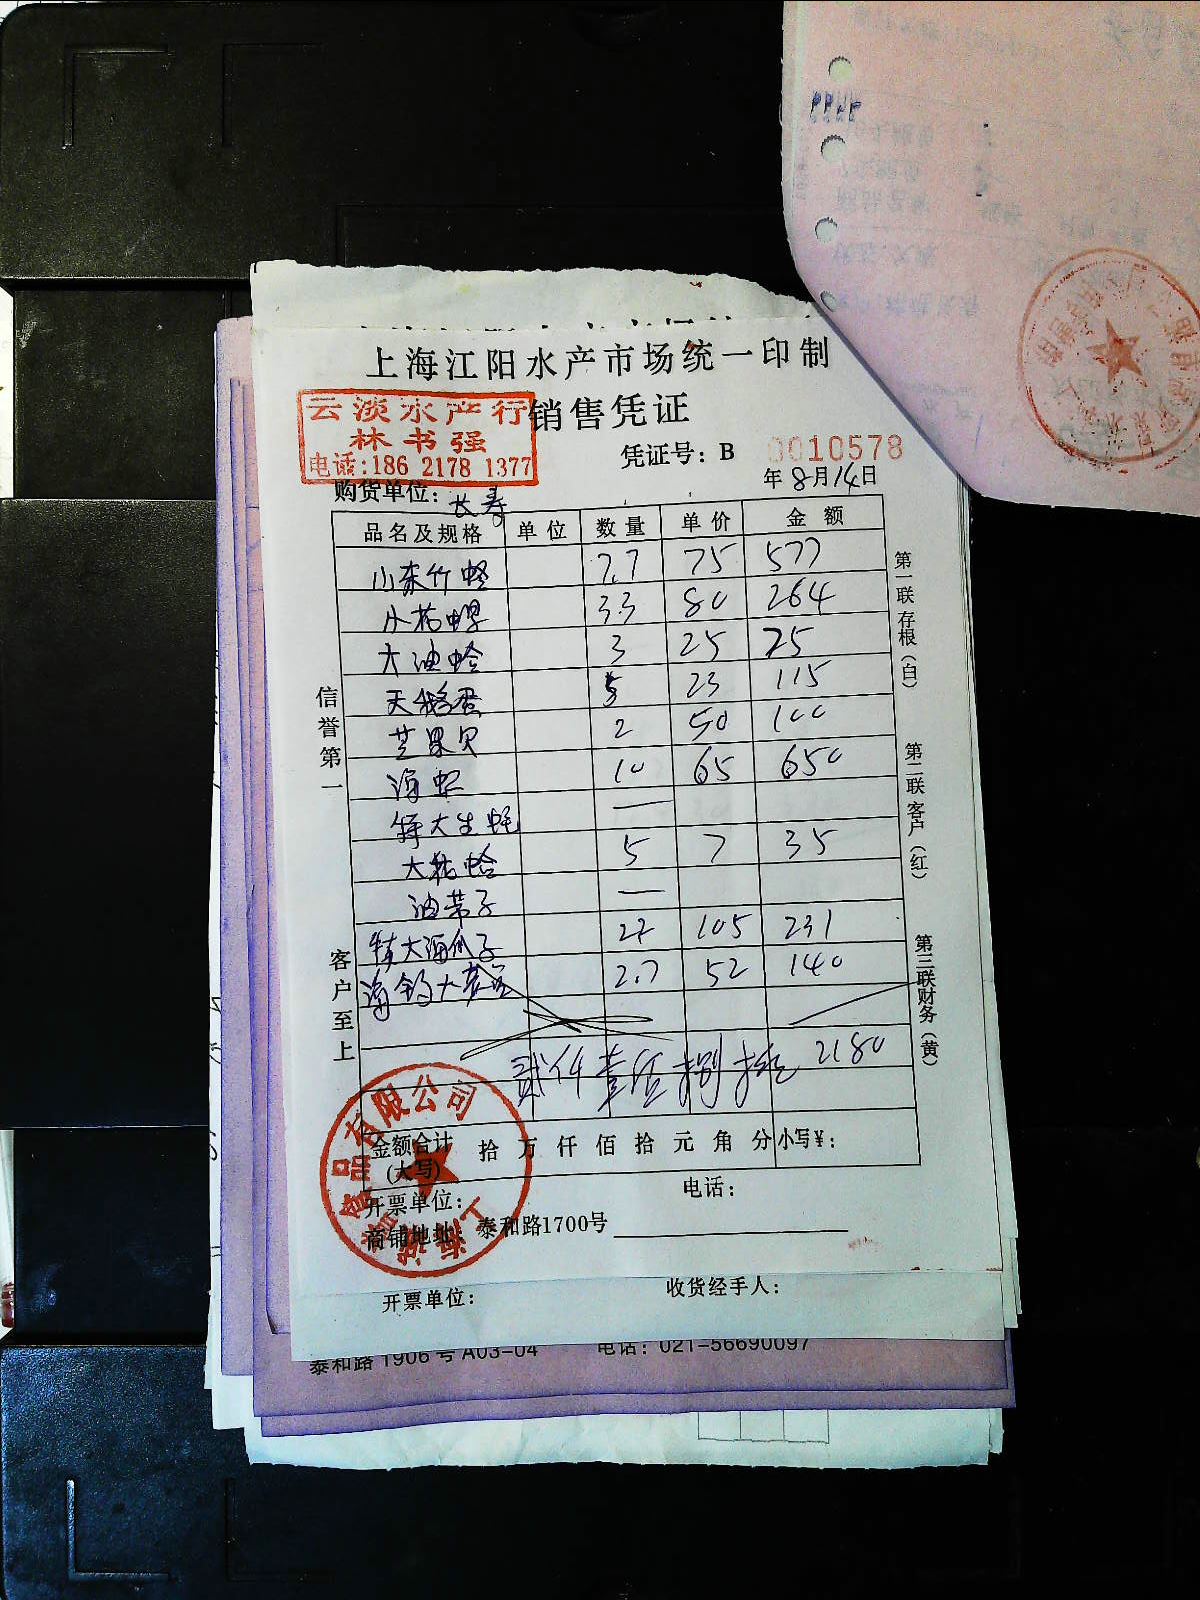 上海江阳水产市场统一印制
云淡水产行
林书强
电话:186 2178 1377
销售凭证
凭证号: B 0010578
购货单位: 长寿
年 8月14日
品名及规格 单位 数量 单价 金额
小东竹蛏 7.7 75 577
小花螺 3.3 80 264
大油蛤 3 25 75
天鹅蛋 5 23 115
芒果贝 2 50 100
海虾 10 65 650
特大生蚝 —
大花蛤 5 7 35
油带子 —
特大海瓜子 2.2 105 231
海钓大黄鱼 2.7 52 140
贰仟壹佰捌拾 2180
金额合计
(大写) 拾 万 仟 佰 拾 元 角 分 小写¥:
开票单位: 电话:
商铺地址: 泰和路1700号
信誉第一
客户至上
第一联 存根(白)
第二联 客户(红)
第三联 财务(黄)
有限公司
开票单位: 收货经手人:
泰和路 1906 号 A03-04 电话: 021-56690097